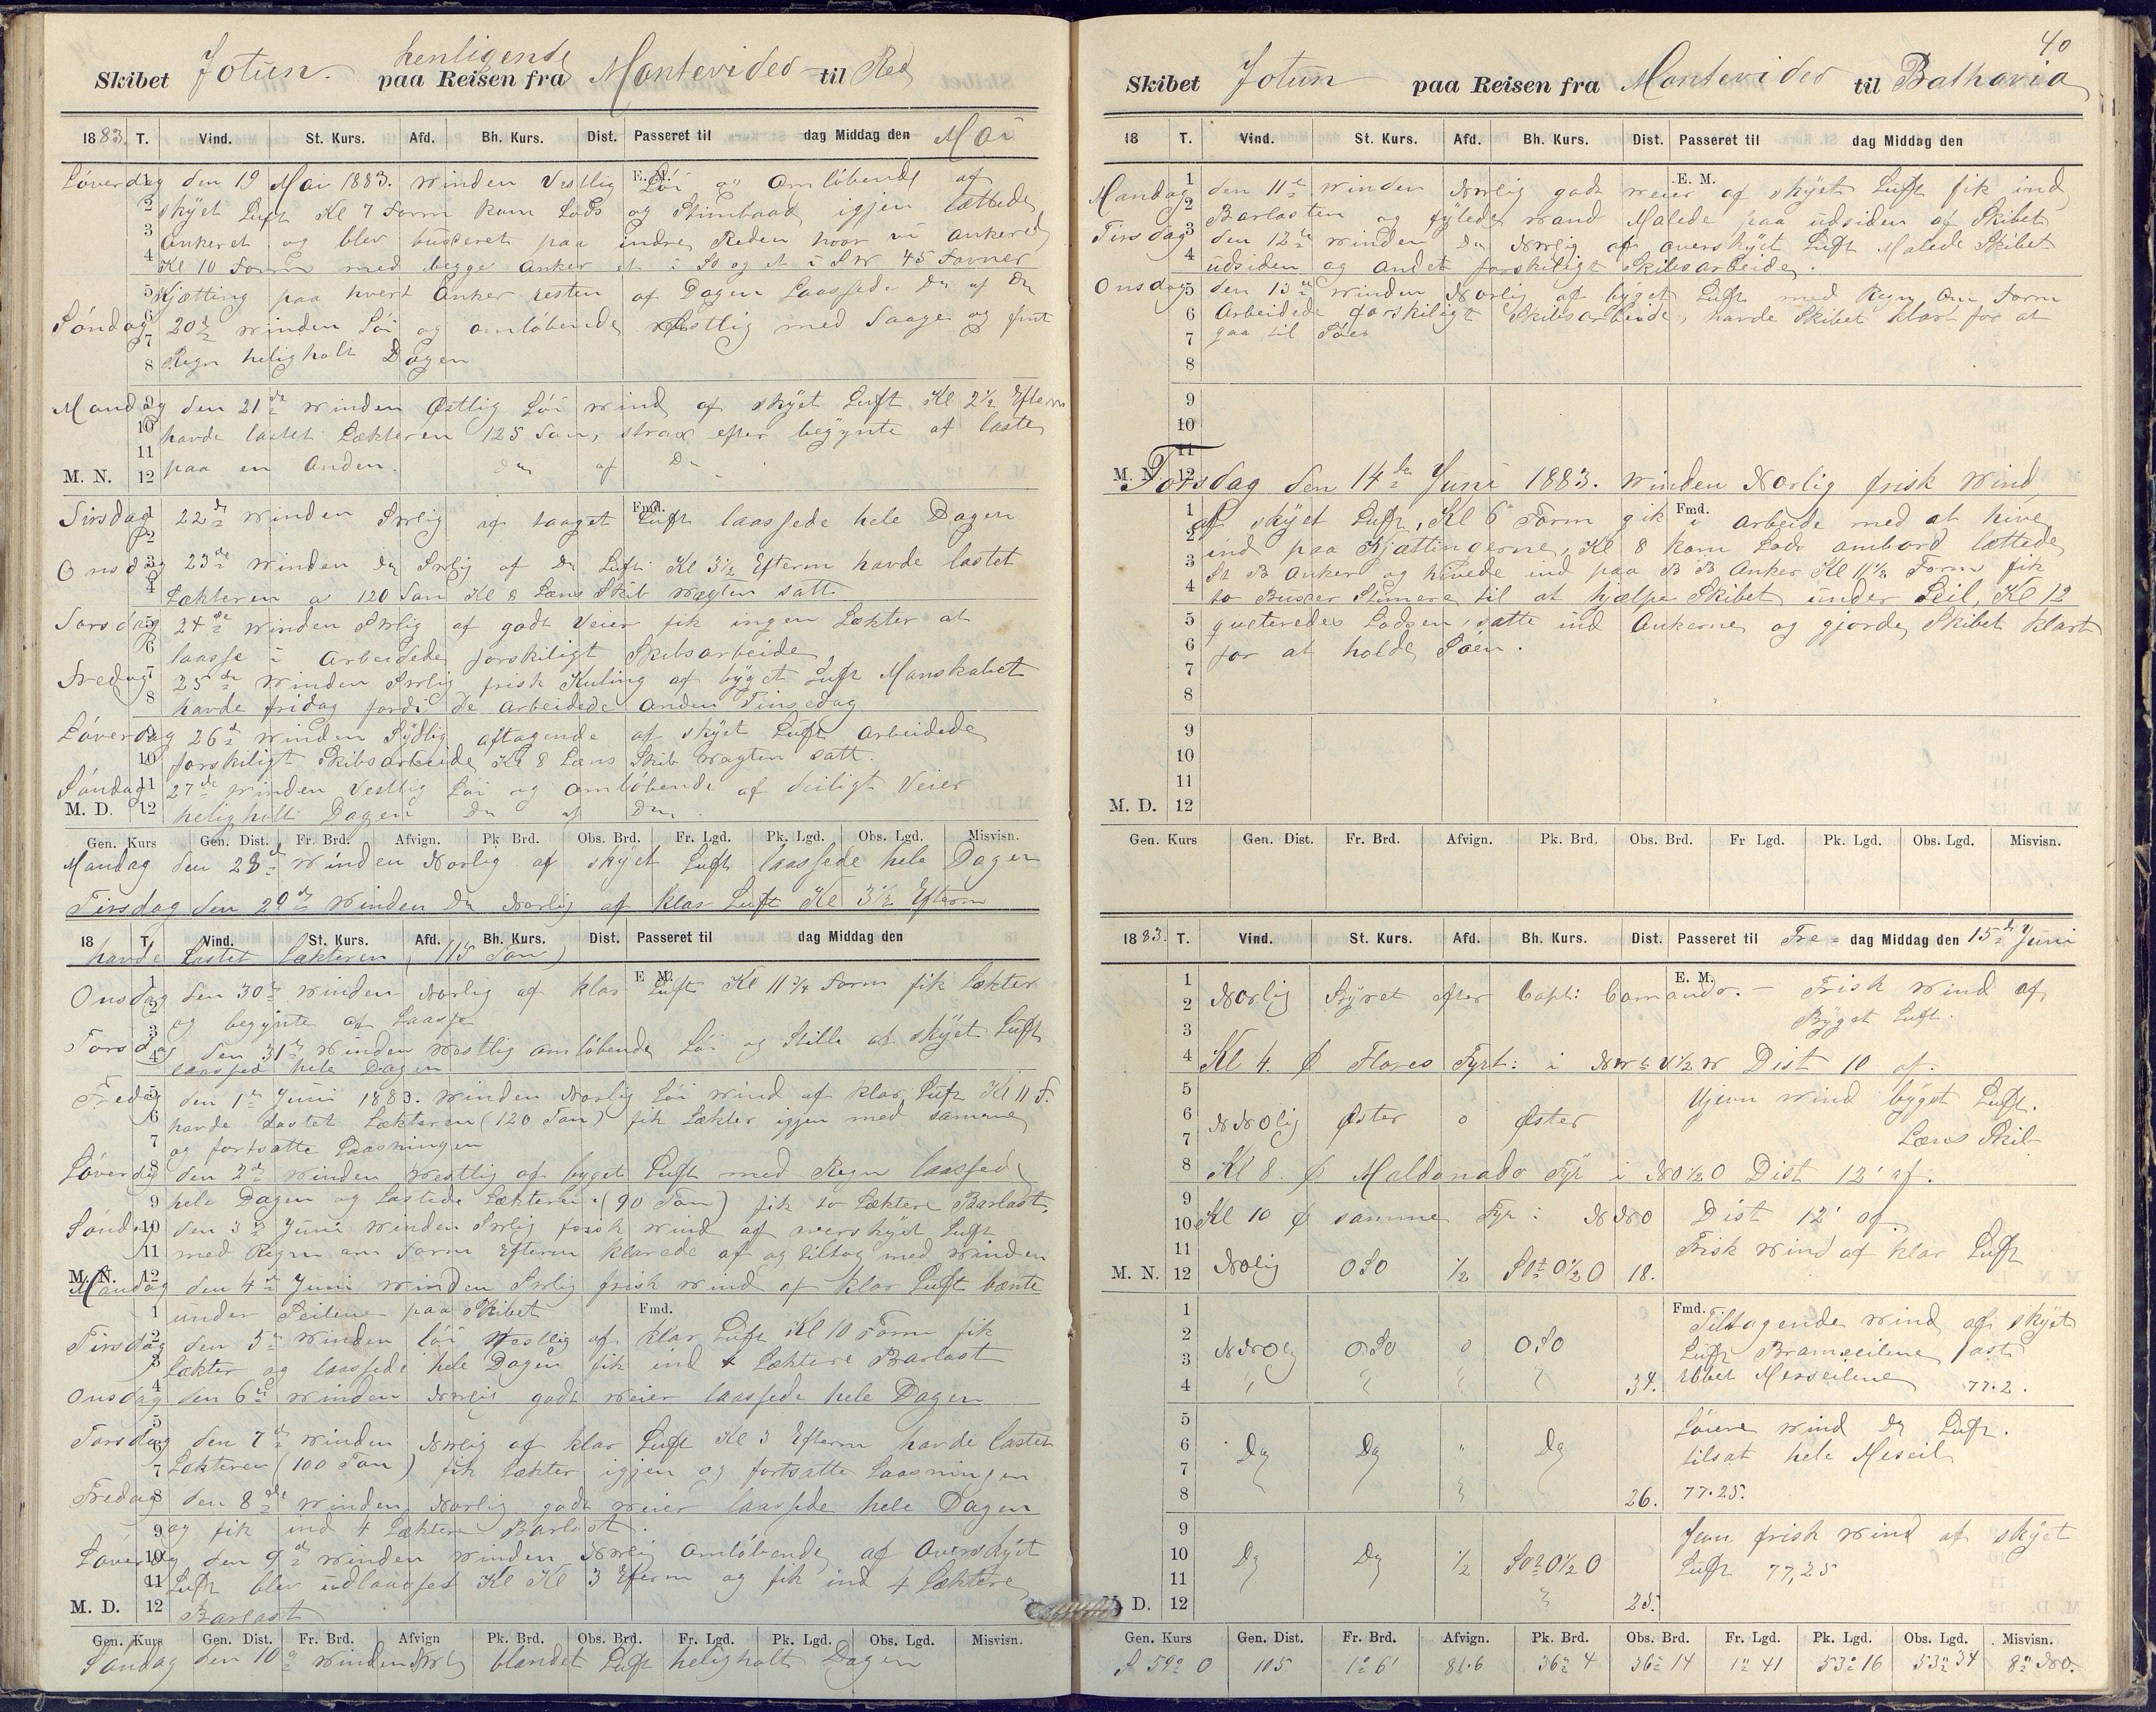 Skibet Jotun. henligende paa Reisen fra Montevideo til Red
1883. T. Vind. St. Kurs. Afd. Bh. Kurs. Dist. Passeret til dag Middag den Mai
Löverdag den 19 Mai 1883. Winden Vestlig Löi og Omlöbende af
skyet Luft Kl 7 Form kom Lods og Stimbaad igjen lættede
Ankeret og blev buxeret paa indre Reden hvor vi ankered
Kl 10 Form med begge Anker et i So og et i SW 45 Favner
Kjætting paa hvert Anker resten af Dagen Laassede Do af Do
Söndag 20de Winden Löi og omlöbende Vestlig med Taage og fint
Regn heligholt Dagen
Mandag den 21de Winden Østlig Löi Wind af skyet Luft Kl 2½ Efterm
havde lastet Lækteren 125 Ton, strax efter begynte at laste
M. N. paa en Anden. Do af Do
Tirsdag 22de Winden SWlig af taaget Luft laassede hele Dagen
Onsdag 23de Winden Do SWlig af Do Luft Kl 3½ Efterm havde lastet
Lækteren a 120 Ton Kl 8 Læns Skib Wagten satt
Torsdag 24de Winden SWlig af godt Veier fik ingen Lækter at
laasse i Arbeidede forskiligt Skibsarbeide
Fredag 25de Winden SWlig frisk Kuling af byget Luft Manskabet
havde fridag fordi de Arbeidede Anden Pinsedag
Löverdag 26de Winden Sydlig aftagende af skyet Luft Arbeidede
forskiligt Skibsarbeide Kl 8 Læns Skib Wagten satt.
Söndag 27de Winden Vestlig Löi og Omlöbende af deiligt Veier
M. D. heligholt Dagen Do af Do
Gen. Kurs Gen. Dist. Fr. Brd. Afvign. Pk Brd. Obs. Brd. Fr. Lgd. Pk. Lgd. Obs. Lgd. Misvisn.
Mandag den 28de Winden Norlig af skyet Luft laassede hele Dagen
Tirsdag den 29de Winden Do Norlig af klar Luft Kl 3½ Efterm
18 T. Vind. St. Kurs. Afd. Bh. Kurs. Dist. Passeret til dag Middag den
havde Lastet Lækteren (115 Ton)
Onsdag den 30te Winden Norlig af klar Luft Kl 11¾ Form fik Lækter
og begynte at Laasse
Torsdag den 31te Winden Westlig omlöbende Löi og Stille af skyet Luft
laassed hele Dagen
Fredag den 1te Juni 1883. Winden Norlig Löi Wind af klar Luft Kl 11 F.
havde Lastet Lækteren (120 Ton) fik Lækter igjen med samme
og fortsatte Laasningen
Löverdag den 2de Winden Westlig af byget Luft med Regn laassed
hele Dagen og Lastede Lækteren (90 Ton) fik to Læktere Barlast.
Söndag den 3de Juni Winden SWlig frisk Wind af overskyet Luft
med Regn om Form Efterm klarede af og tiltog med Winden
M. N. Mandag den 4de Juni Winden SWlig frisk Wind af klar Luft bænte
under Seilene paa Skibet
Tirsdag den 5te Winden löi Westlig af klar Luft Kl 10 Form fik
Lækter og laassede hele Dagen fik ind 4 Læktere Barlast
Onsdag den 6te Winden NWlig godt Weier laassede hele Dagen
Torsdag den 7de Winden NWlig af klar Luft Kl 3 Efterm havde lastet
Lækteren (100 Ton) fik Lækter igjen og fortsatte Laasningen
Fredag den 8de Winden Norlig godt Weier laassede hele Dagen
og fik ind 4 Læktere Barlast.
Löverdag den 9de Winden Winden NWlig Omlöbende af Overskyet
Luft blev udlaasset Kl Kl 3 Efterm og fik ind 4 Læktere
M. D. Barlast
Gen. Kurs Gen. Dist. Fr. Brd. Afvign Pk. Brd. Obs. Brd. Fr. Lgd. Pk. Lgd. Obs. Lgd. Misvisn.
Söndag den 10de Winden NWlig blandet Luft heligholt Dagen
40
Skibet Jotun paa Reisen fra Montevideo til Bathavia
18 T. Vind. St. Kurs. Afd. Bh. Kurs. Dist. Passeret til dag Middag den
Mandag den 11te Winden NWlig godt Weier af skyet Luft fik ind
Barlasten og fylede Wand Malede paa udsiden af Skibet
Tirsdag den 12te Winden Do NWlig af overskyet Luft Malede Skibet
udsiden og Andet forskiligt Skibsarbeide.
Onsdag den 13de Winden Norlig af byget Luft med Regn Om Form
Arbeidede forskiligt Skibsarbeide, havde Skibet klart for at
gaa til Söes
M. N. Torsdag den 14de Juni 1883. Winden Norlig frisk Wind
af skyet Luft, Kl 6 Form gik i arbeide med at hive
ind paa Kjættingerne, Kl 8 kom Lods ombord lættede
St B Anker og hivede ind paa B B Anker Kl 11½ Form fik
to Buxer Stimere til at hjælpe Skibet under Seil, Kl 12
qviteredes Lodsen, satte ind Ankerne og gjorde Skibet klart
for at holde Söen.
M. D.
Gen. Kurs Gen. Dist. Fr. Brd. Afvign. Pk. Brd Obs. Brd. Fr Lgd. Pk. Lgd. Obs. Lgd. Misvisn.
1883. T. Vind. St. Kurs. Afd. Bh. Kurs. Dist. Passeret til Fre- dag Middag den 15de Juni
Norlig Styret efter Capt: Comando. – Frisk Wind af
Byget Luft.
Kl 4. Ø Flores Fyrt: i NWtV½W Dist 10 af.
NNOlig Øster 0 Øster Ujevn Wind byget Luft.
Læns Skib
Kl 8. Ø Maldonado Fyr i NO½O Dist 12' af.
Kl 10 Ø samme Fyr: NNO Dist 12' af.
M. N. NOlig OSO ½ SOtO½O 18. Frisk Wind af klar Luft
NNOlig OSO 0 OSO Tiltagende Wind af skyet
Luft Bramseilene fast
34. Rebet Merseilene 77.2.
Do Do " Do Löiere Wind Do Luft.
tilsat hele Meseil
26. 77.25.
Do Do ½ SOtO½O Jevn frisk Wind af skyet
Luft 77,25
D. 25.
Gen. Kurs Gen. Dist. Fr. Brd. Afvign. Pk. Brd. Obs. Brd. Fr. Lgd. Pk. Lgd. Obs. Lgd. Misvisn.
S 59° O 105 1° 6' 81.6 36° 4 36° 14 1° 41 53° 16 53° 34 8° NO.